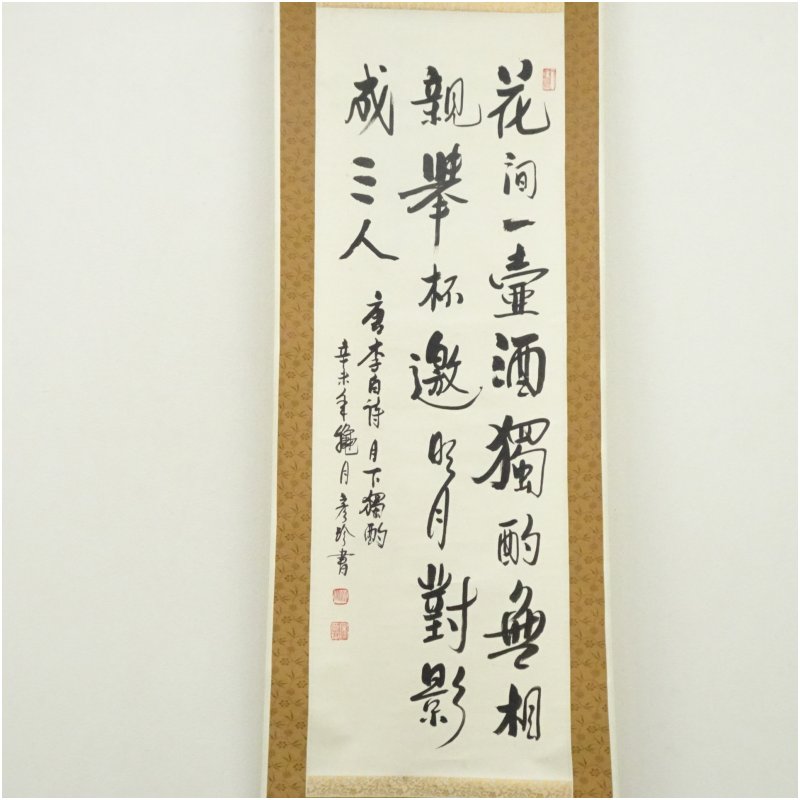 花間一壺酒獨酌無相
親舉杯邀明月對影
成三人
唐李白詩月下獨酌
辛未年 月彥玲書